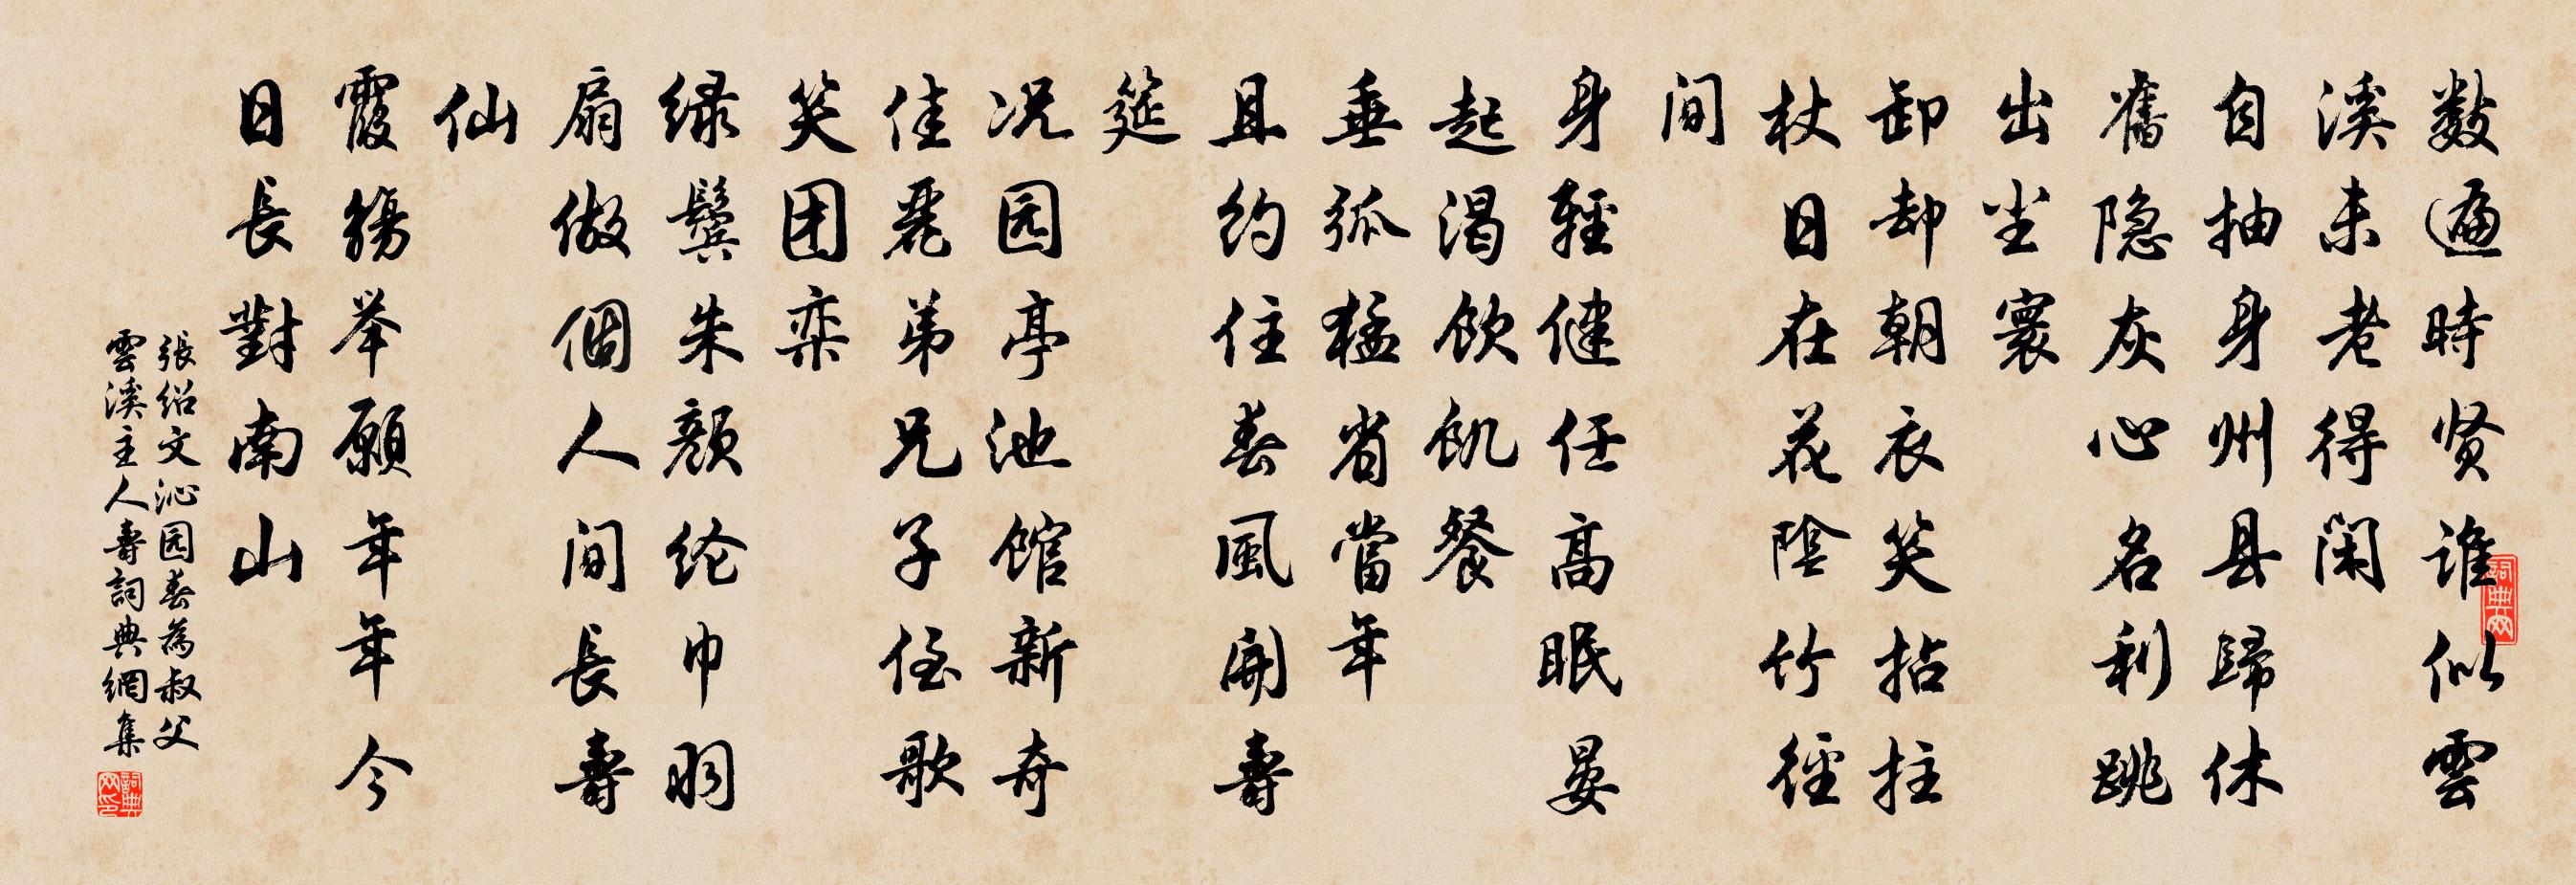 数遍時贤谁似雲
溪未老得闲
自抽身州县歸休
舊隐灰心名利跳
出尘寰
卸却朝衣笑拈拄
杖日在花陰竹徑
间
身輕健任高眠晏
起渴饮飢餐
垂弧猛省當年
且约住春風開壽
筵
况园亭池馆新奇
佳麗弟兄子侄歌
笑团栾
绿鬓朱颜纶巾羽
扇做個人间長壽
仙
霞觞举願年年今
日長對南山
張绍文沁园春為叔父
雲溪主人壽詞典網集
詞典网
詞典网印